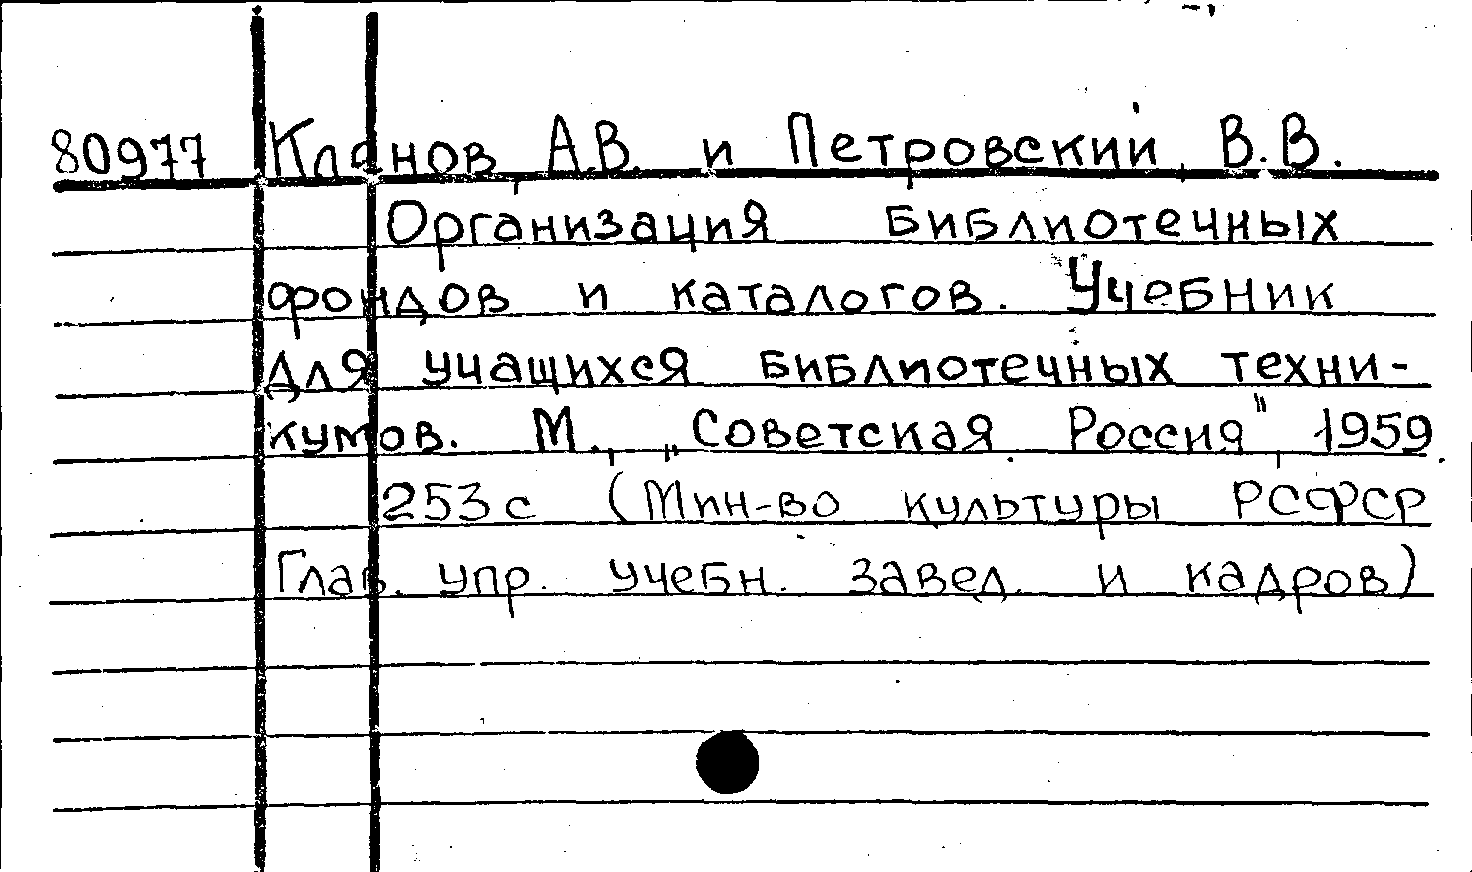 80977 Кланов, А.В. и Петровский, В.В.
Организация библиотечных
фондов и каталогов. Учебник
для учащихся библиотечных техни-
кумов. М., „Советская Россия", 1959.
253 с (Мин-во культуры РСФСР
Глав. упр. учебн. завед. и кадров)